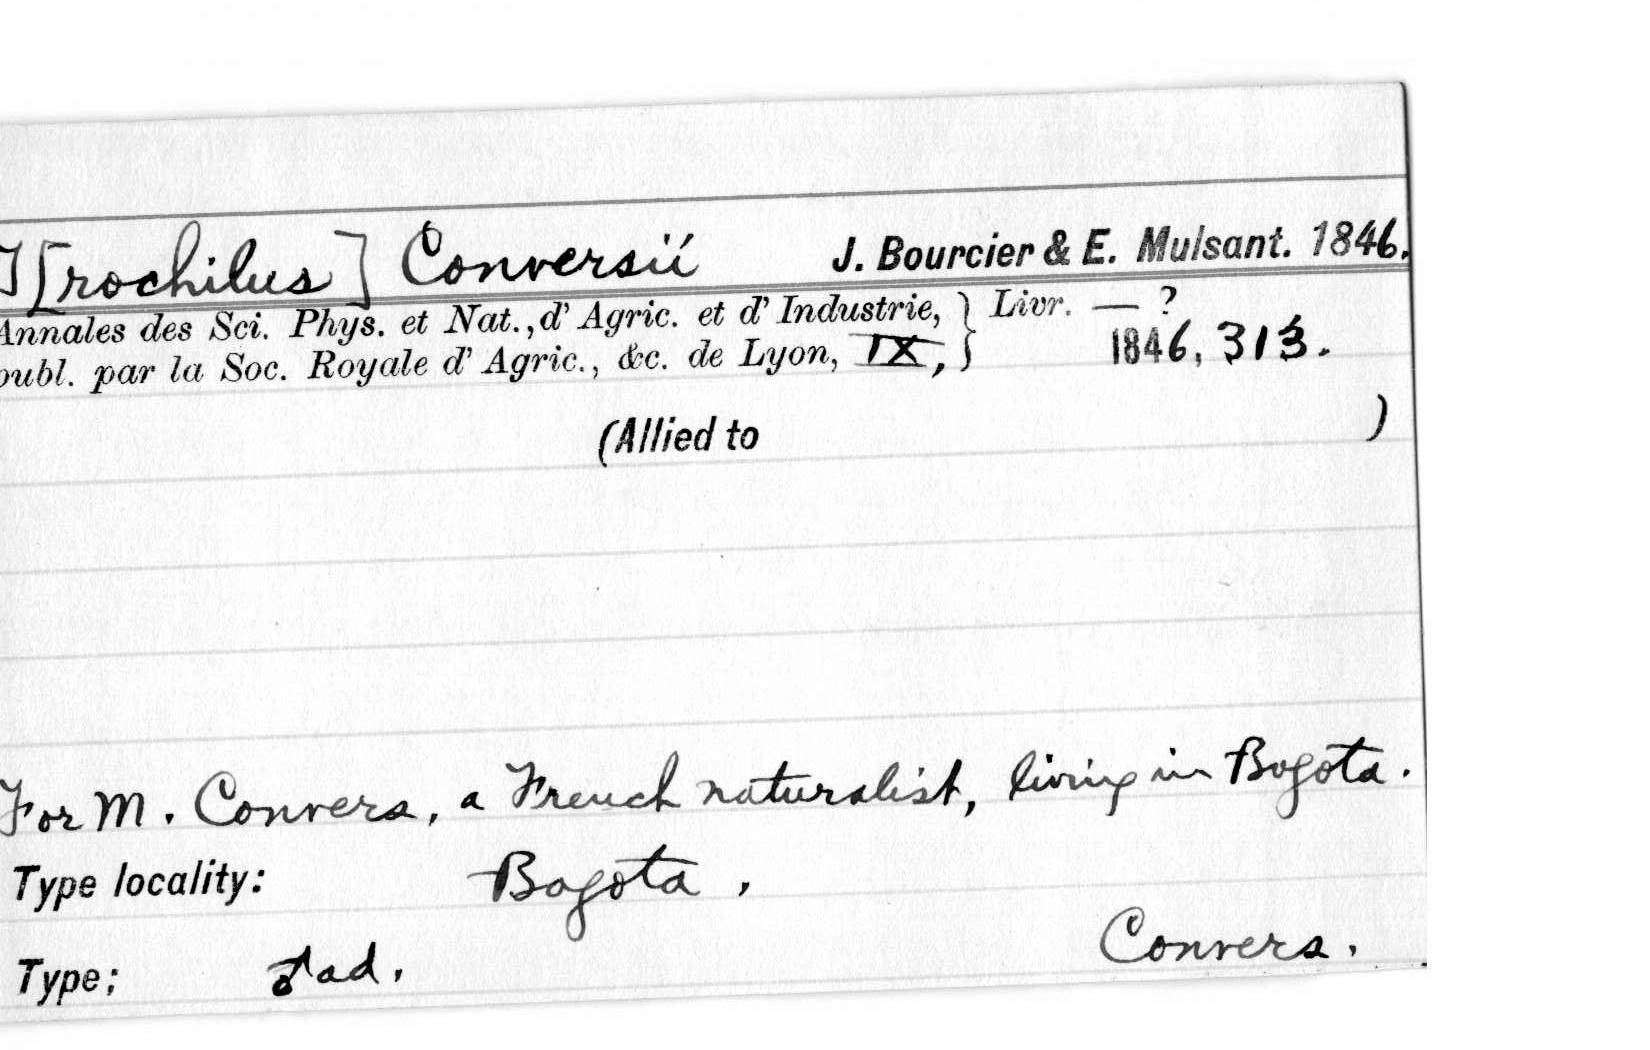 T[rochilus] Conversii J. Bourcier & E. Mulsant. 1846.
Annales des Sci. Phys. et Nat., d' Agric. et d' Industrie, } Livr. — ?
publ. par la Soc. Royale d' Agric., &c. de Lyon, IX, } 1846, 313.
(Allied to )
For M. Convers, a French naturalist, living in Bogota.
Type locality: Bogota.
Convers.
Type; ♂ ad.